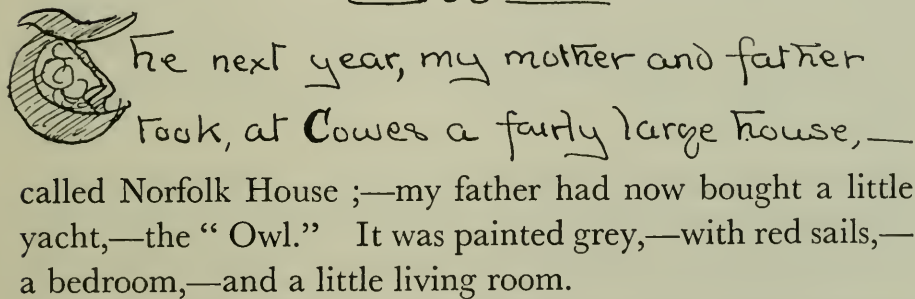 The next year, my mother and father
took, at Cowes a fairly large house,—
called Norfolk House ;—my father had now bought a little
yacht,—the “ Owl.” It was painted grey,—with red sails,—
a bedroom,—and a little living room.